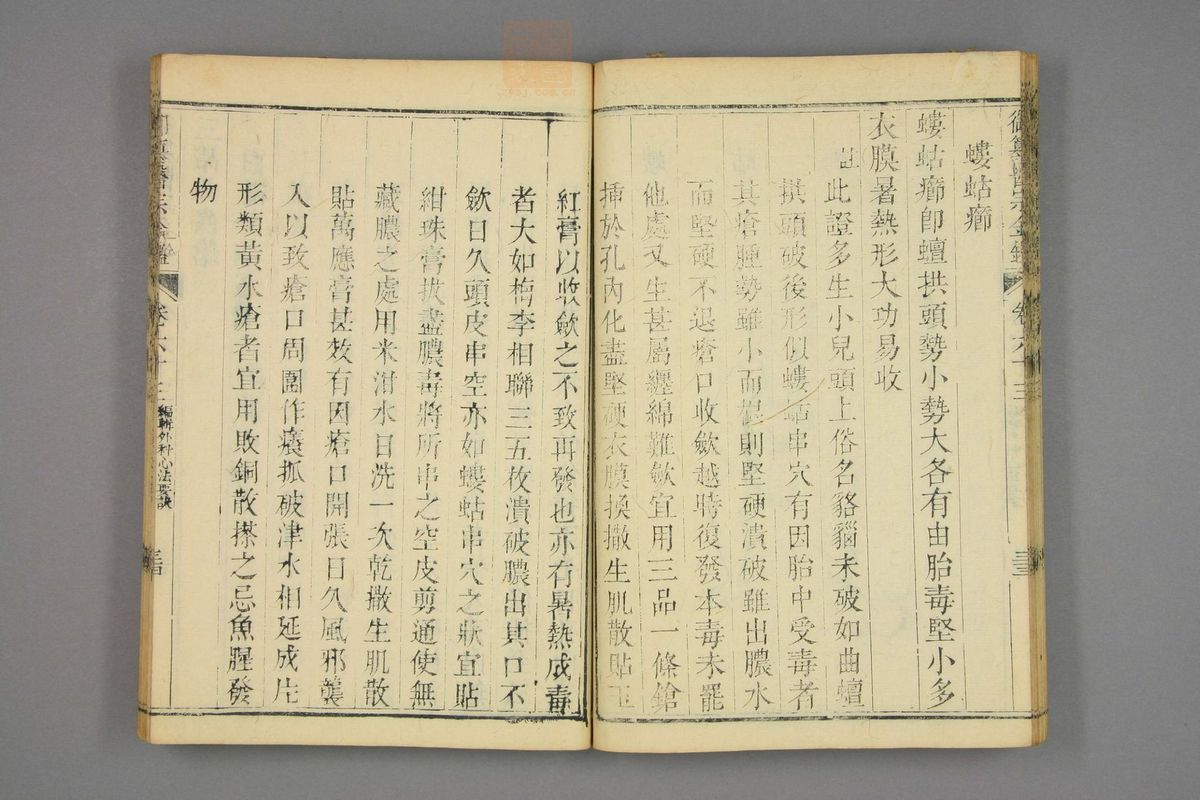 御纂醫宗金鑑 卷六十三
螻蛄癤
螻蛄癤卽蟺拱頭勢小勢大各有由胎毒堅小多
衣膜暑熱形大功易收
註此證多生小兒頭上俗名貉貓未破如曲蟺
拱頭破後形似螻蛄串穴有因胎中受毒者
其瘡腫勢雖小而根則堅硬潰破雖出膿水
而堅硬不退瘡口收斂越時復發本毒未罷
他處又生甚屬纏綿難斂宜用三品一條鎗
揷於孔內化盡堅硬衣膜換撒生肌散貼玉
紅膏以收斂之不致再發也亦有暑熱成毒
者大如梅李相聯三五枚潰破膿出其口不
斂日久頭皮串空亦如螻蛄串穴之狀宜貼
紺珠膏拔盡膿毒將所串之空皮剪通使無
藏膿之處用米泔水日洗一次乾撒生肌散
貼萬應膏甚效有因瘡口開張日久風邪襲
入以致瘡口周圍作癢抓破津水相延成片
形類黃水瘡者宜用敗銅散搽之忌魚腥發
物
卷六十三 編輯外科心法要訣